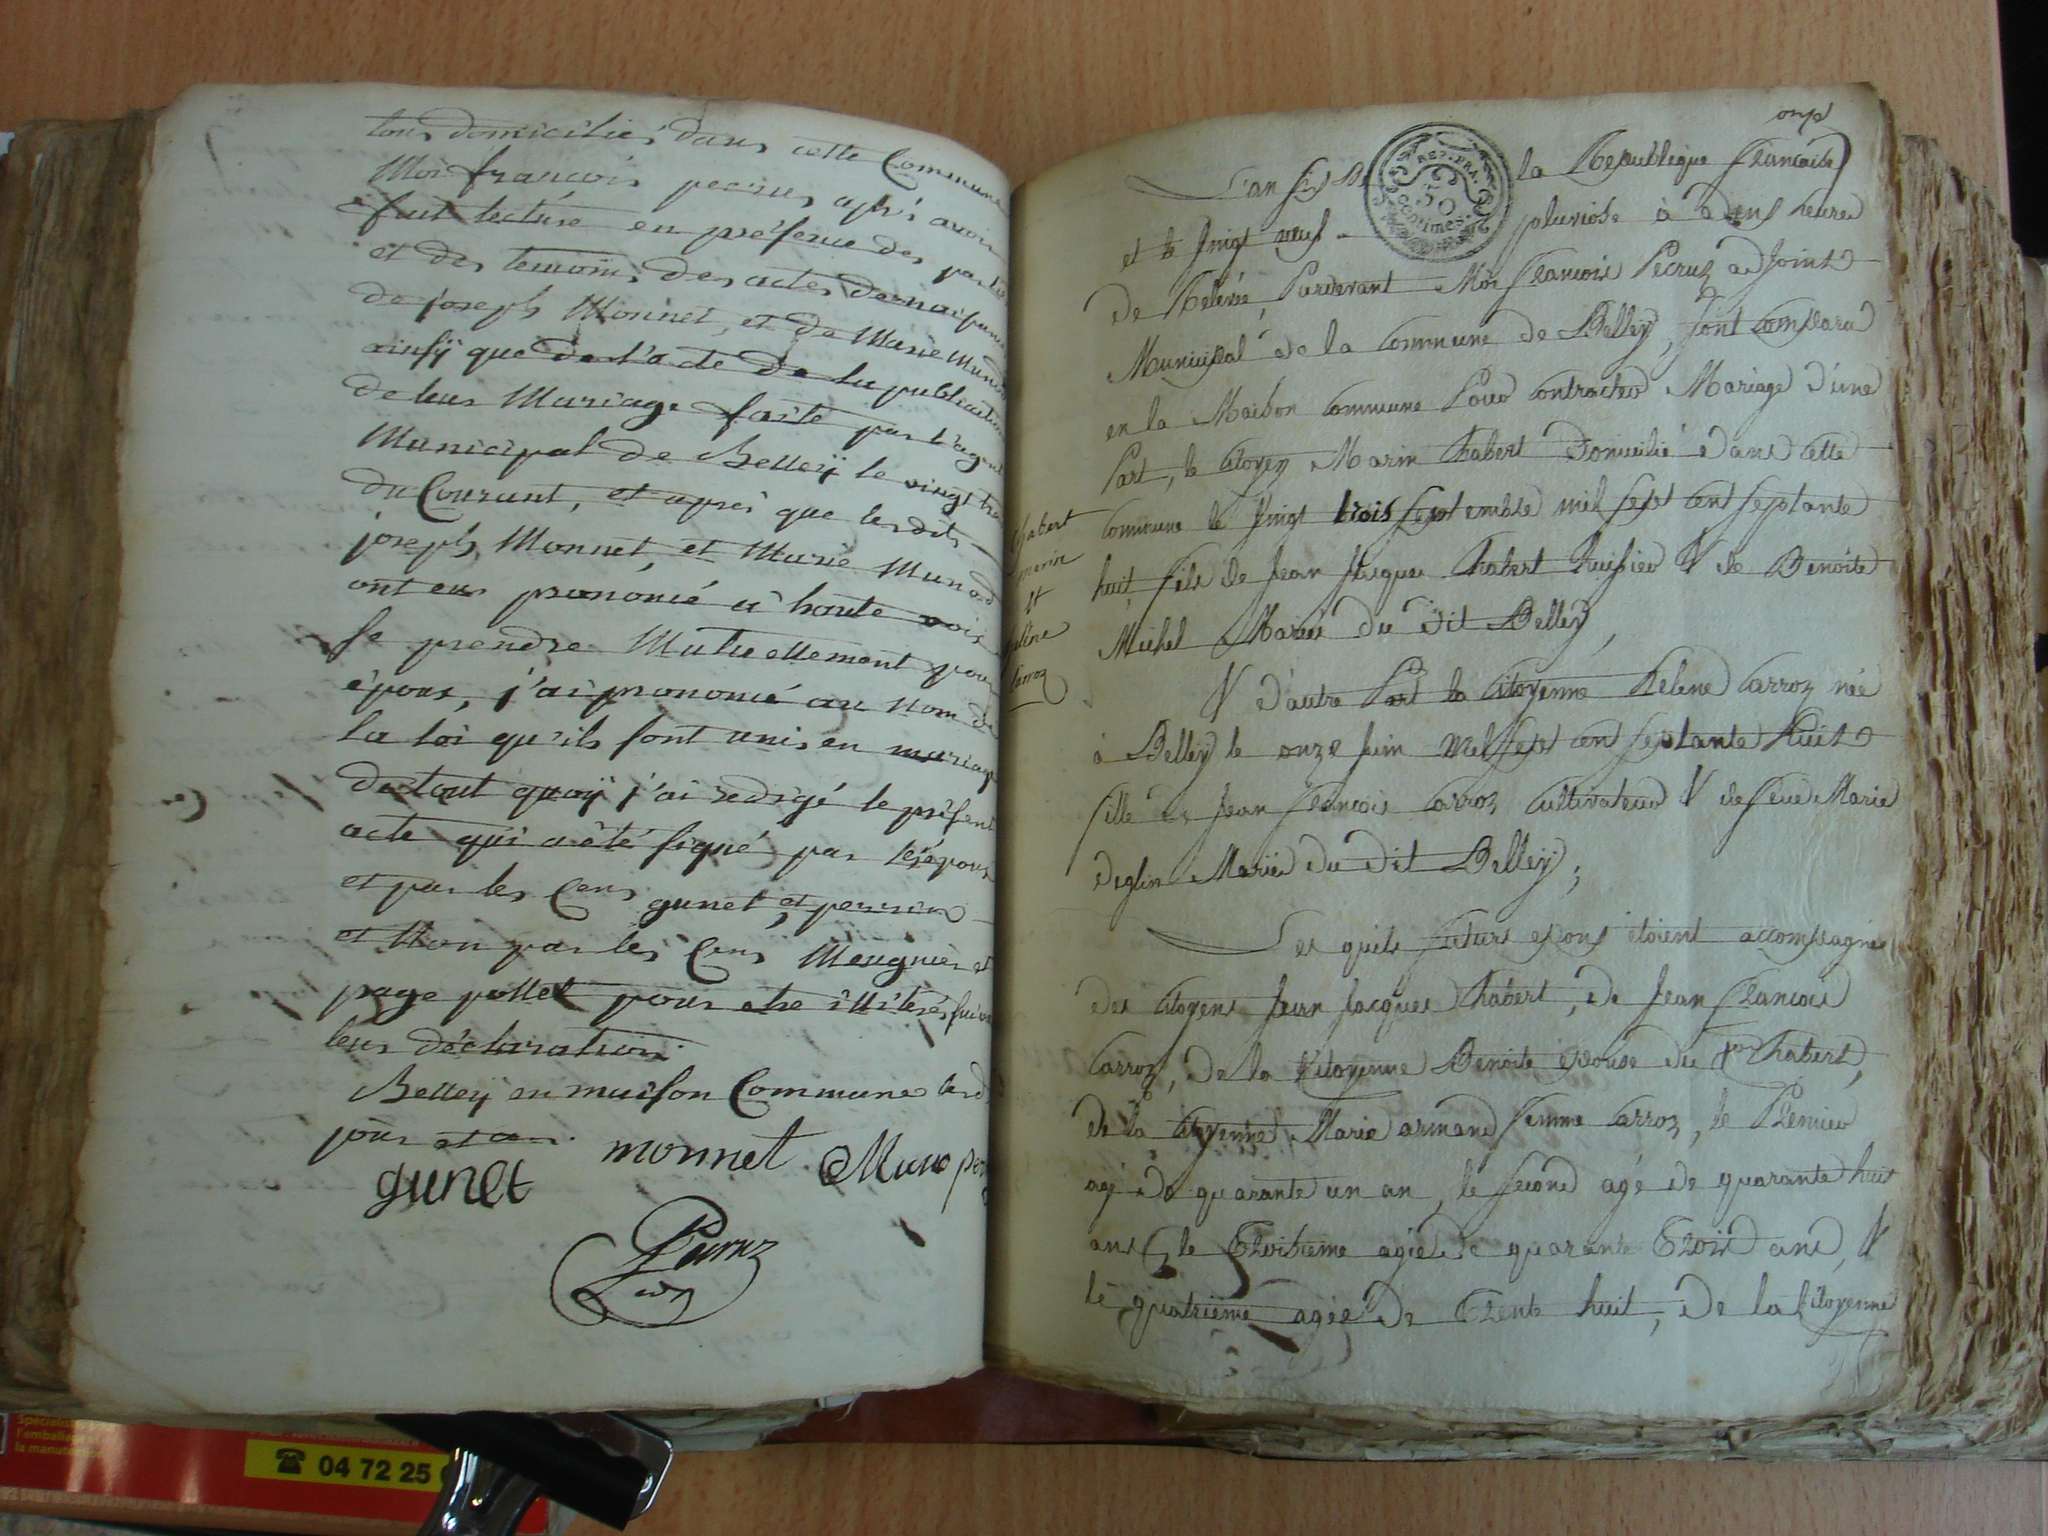 tous domiciliés dans cette Commune
Moi françois pecruz après avoir
fait lecture en présence des parties
et des temoins, des actes de naissance
de joseph Monnet, et de Marie Munod
ainsÿ que de l'acte de la publication
de leur Mariage faite par l'agent
Municipal de Belleÿ le vingt trois
du Courant, et après que lesdits
joseph Monnet, et Marie Munod
ont eu prononcé a haute voix
se prendre Mutuellement pour
épous, j'ai prononcé au Nom de
la loi qu'ils sont unis en mariage
de tout quoÿ j'ai redigé le présent
acte qui a été signé par les épous
et par les Cens gunet, et
et Non par les Cens Meugnier et
page pollet pour etre illiterés suivant
leur déclaration.
Belleÿ en maison Commune lesd
jour et an.
monnet Muno
gunet
Pecruz
adj
onze
L'an six de la Republique francaise
REP. FRA.
50
CENTIMES
et le vingt neuf pluviose à deux heures
de Relevée, Pardevant Moi francois Pecruz adjoint
Municipal de la commune de Belley, sont comparu
en la Maison commune Pour contracter Mariage d'une
Part, le citoyen Marin Chabert Domicilié dans cette
commune le vingt trois septembre mil sept cent septante
huit, fils de Jean Jacques Chabert huissier & de Benoite
Michel Mariés du dit Belley,
Chabert
marin
et
heléne
Carroz
& d'autre Part la citoyenne Helene Carroz née
à Belley le onze juin mil sept cent septante huit
fille de Jean francois Carroz cultivateur & de feue Marie
deglin Mariés du dit Belleÿ;
Les quels futurs epous étoient accompagnés
des citoyens Jean Jacques Chabert, de Jean francois
Carroz, de la citoyenne Benoite Epouse du Chabert,
de la citoyenne Marie armand femme Carroz, le Premier
agé de quarante un an, le second agé de quarante huit
ans, le Troisieme agée de quarante Trois ans, &
le quatrieme agée de Trente huit, de la citoyenne
04 72 25
l'emballage